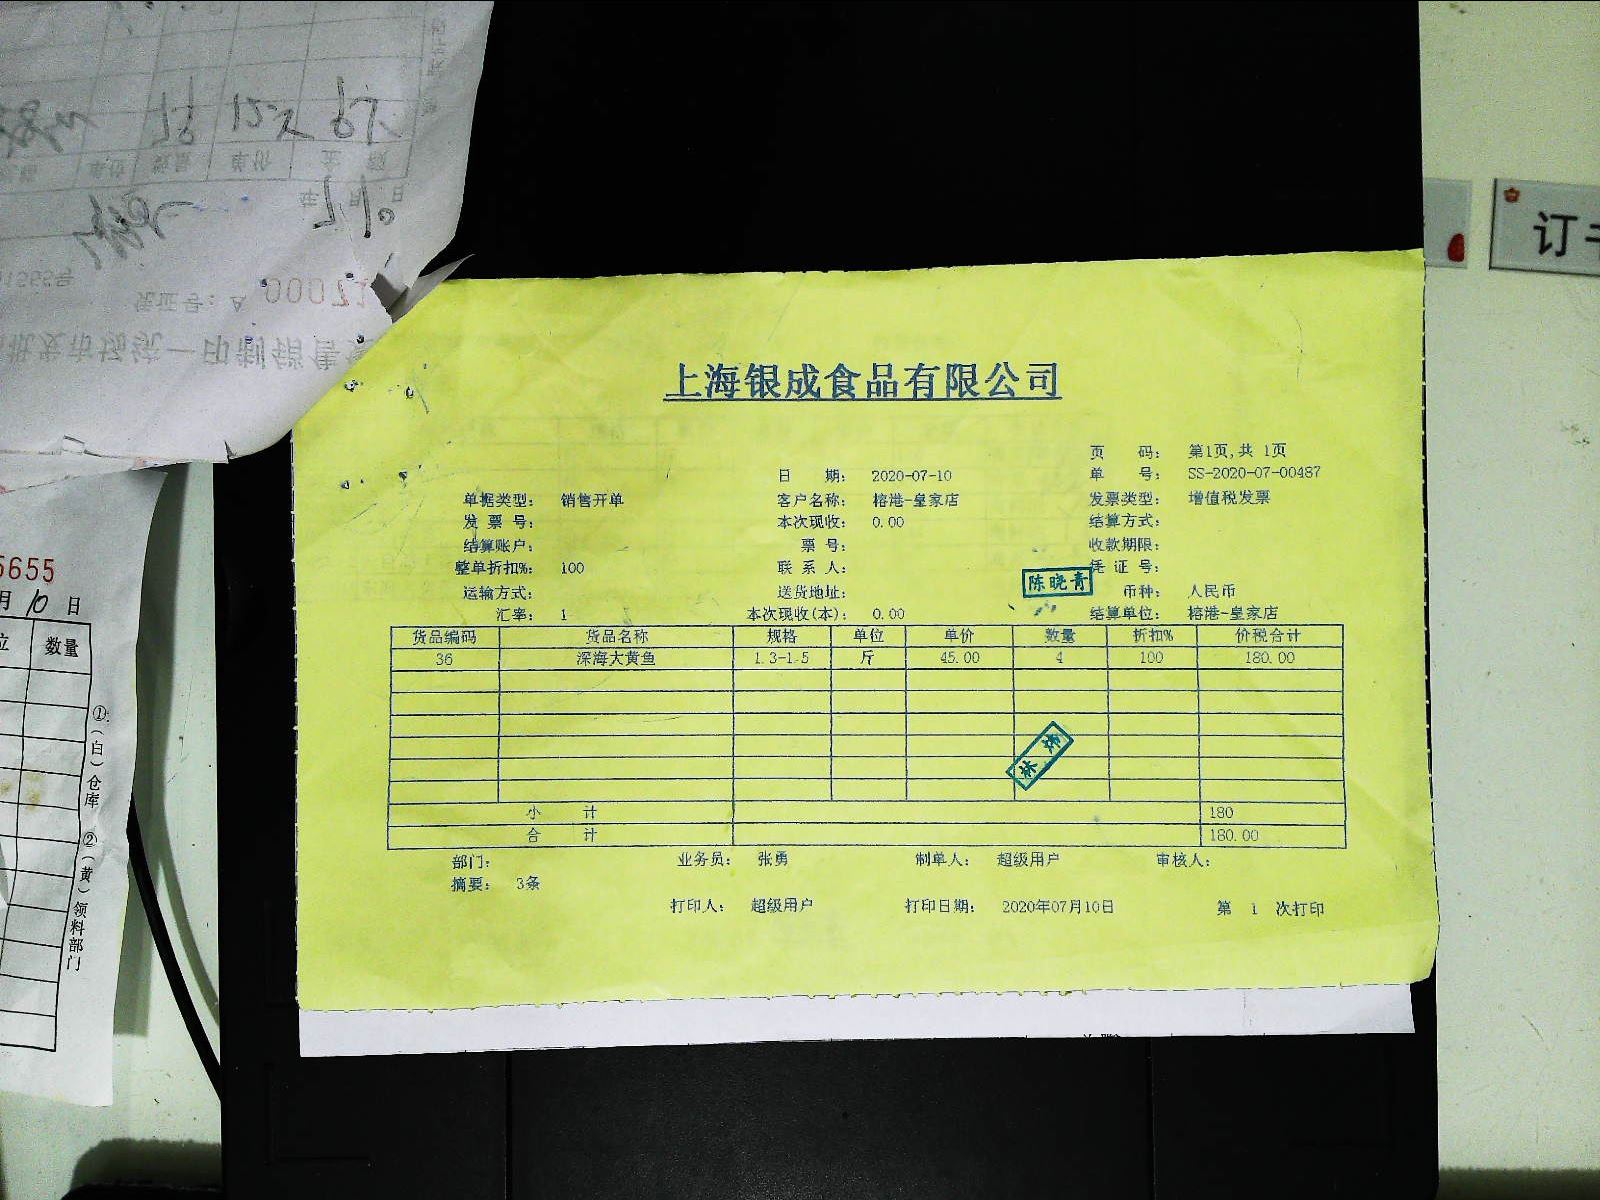 上海银成食品有限公司
页 码: 第1页,共 1页
日 期: 2020-07-10 单 号: SS-2020-07-00487
单据类型: 销售开单 客户名称: 榕港-皇家店 发票类型: 增值税发票
发 票 号: 本次现收: 0.00 结算方式:
结算账户: 票 号: 收款期限:
整单折扣%: 100 联 系 人: 凭 证 号:
陈晓青
运输方式: 送货地址: 币种: 人民币
汇率: 1 本次现收(本): 0.00 结算单位: 榕港-皇家店
货品编码 货品名称 规格 单位 单价 数量 折扣% 价税合计
36 深海大黄鱼 1.3-1.5 斤 45.00 4 100 180.00
林炜
小 计 180
合 计 180.00
部门: 业务员: 张勇 制单人: 超级用户 审核人:
摘要: 3条
打印人: 超级用户 打印日期: 2020年07月10日 第 1 次打印
5655
月 10 日
位 数量
①:(白)仓库 ②(黄)领料部门
订
批发市场统一印制销售
凭证号: A 00071
年 月 日
单位 数量 单价 金 额